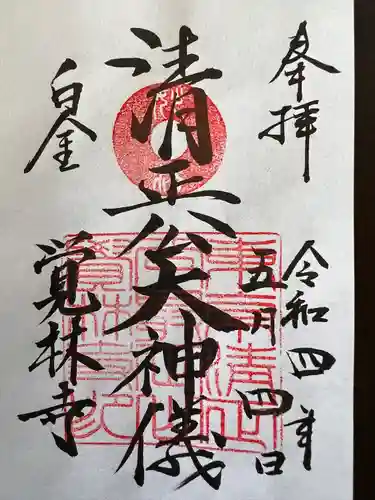 奉拝
令和四年
五月四日
清正公大神儀
白金
覚林寺